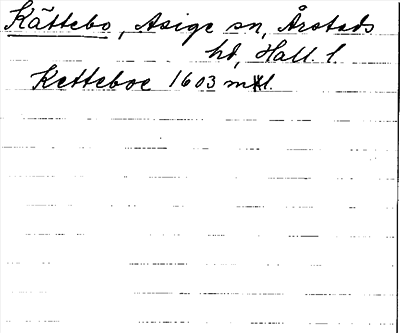 Kättebo, Asige sn, Årstads
hd, Hall. l.
Ketteboe 1603 mtl.